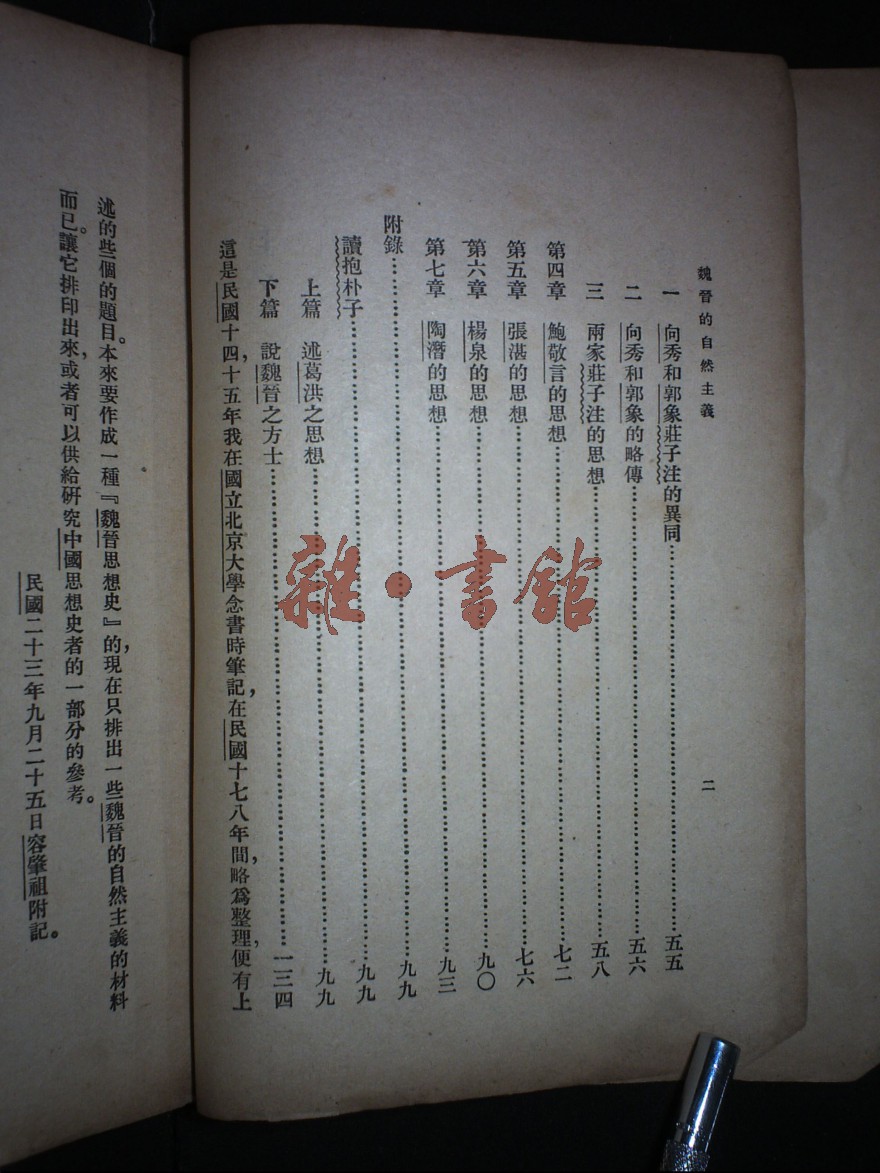 魏晉的自然主義
二
一 向秀和郭象莊子注的異同……五五
二 向秀和郭象的略傳……五六
三 兩家莊子注的思想……五八
第四章 鮑敬言的思想……七二
第五章 張湛的思想……七六
第六章 楊泉的思想……九〇
第七章 陶潛的思想……九三
附錄……九九
讀抱朴子……九九
上篇 述葛洪之思想……九九
下篇 說魏晉之方士……一三四
這是民國十四,十五年我在國立北京大學念書時筆記,在民國十七八年間,略爲整理,便有上
述的些個的題目。本來要作成一種『魏晉思想史』的,現在只排出一些魏晉的自然主義的材料
而已。讓它排印出來,或者可以供給研究中國思想史者的一部分的參考。
民國二十三年九月二十五日容肇祖附記。
雜·書館